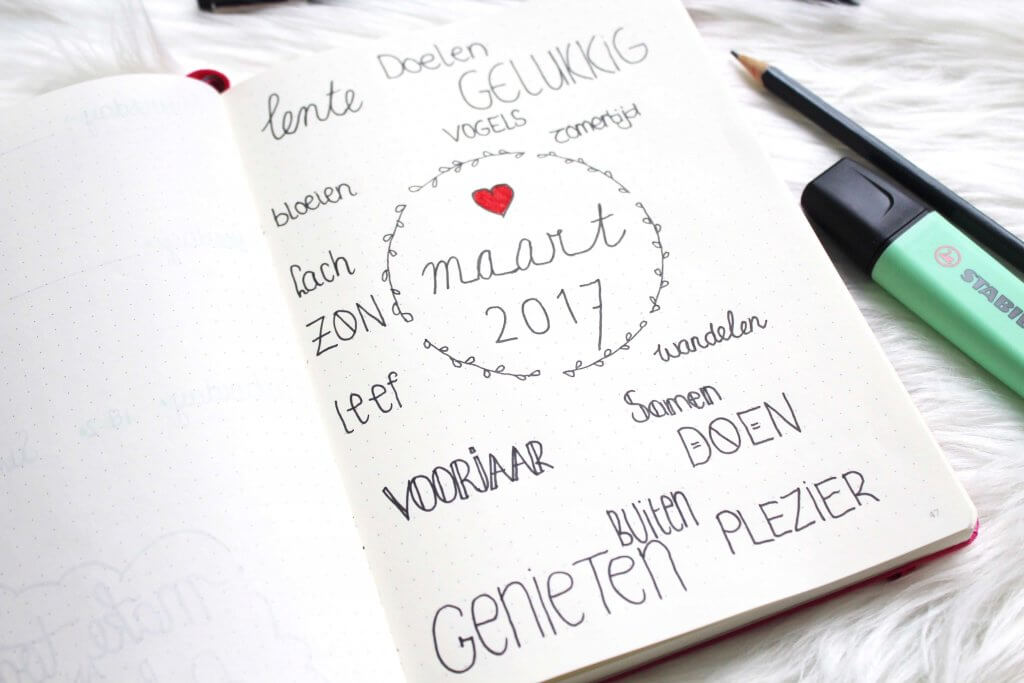 Doelen
GELUKKIG
lente
VOGELS
zomertijd
bloeien
Lach
maart
ZON
2017
wandelen
Leef
Samen
DOEN
VOORJAAR
BUITEN
PLEZIER
GENIETEN
47
STABIL